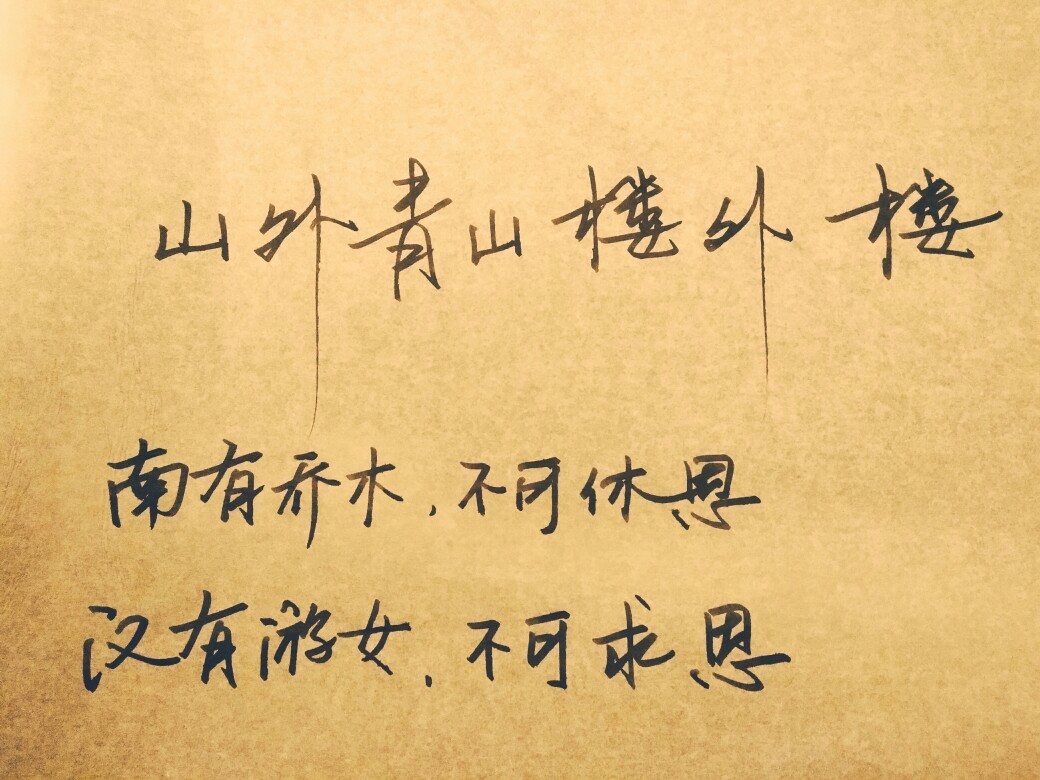 山外青山楼外楼
南有乔木，不可休恩
汉有游女，不可求恩